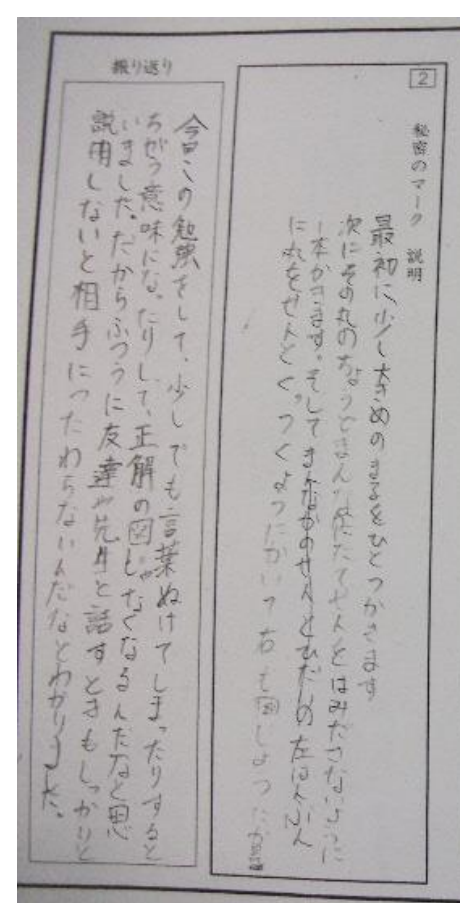 2
秘密のマーク 説明
最初に少し大きめのまるをひとつかきます
次にその丸のちょうどまんなかにたてせんとはみださないように
一本かきます。そしてまんなかのせんとひだりの左はんぶん
に丸をせんとくっつくようにかいて右も同じようにか
振り返り
今日この勉強をして、少しでも言葉ぬけてしまったりすると
ちがう意味になったりして、正解の図じゃなくなるんだなと思
いました。だからふつうに友達や先生と話すときもしっかりと
説明しないと相手につたわらないんだなとわかりました。